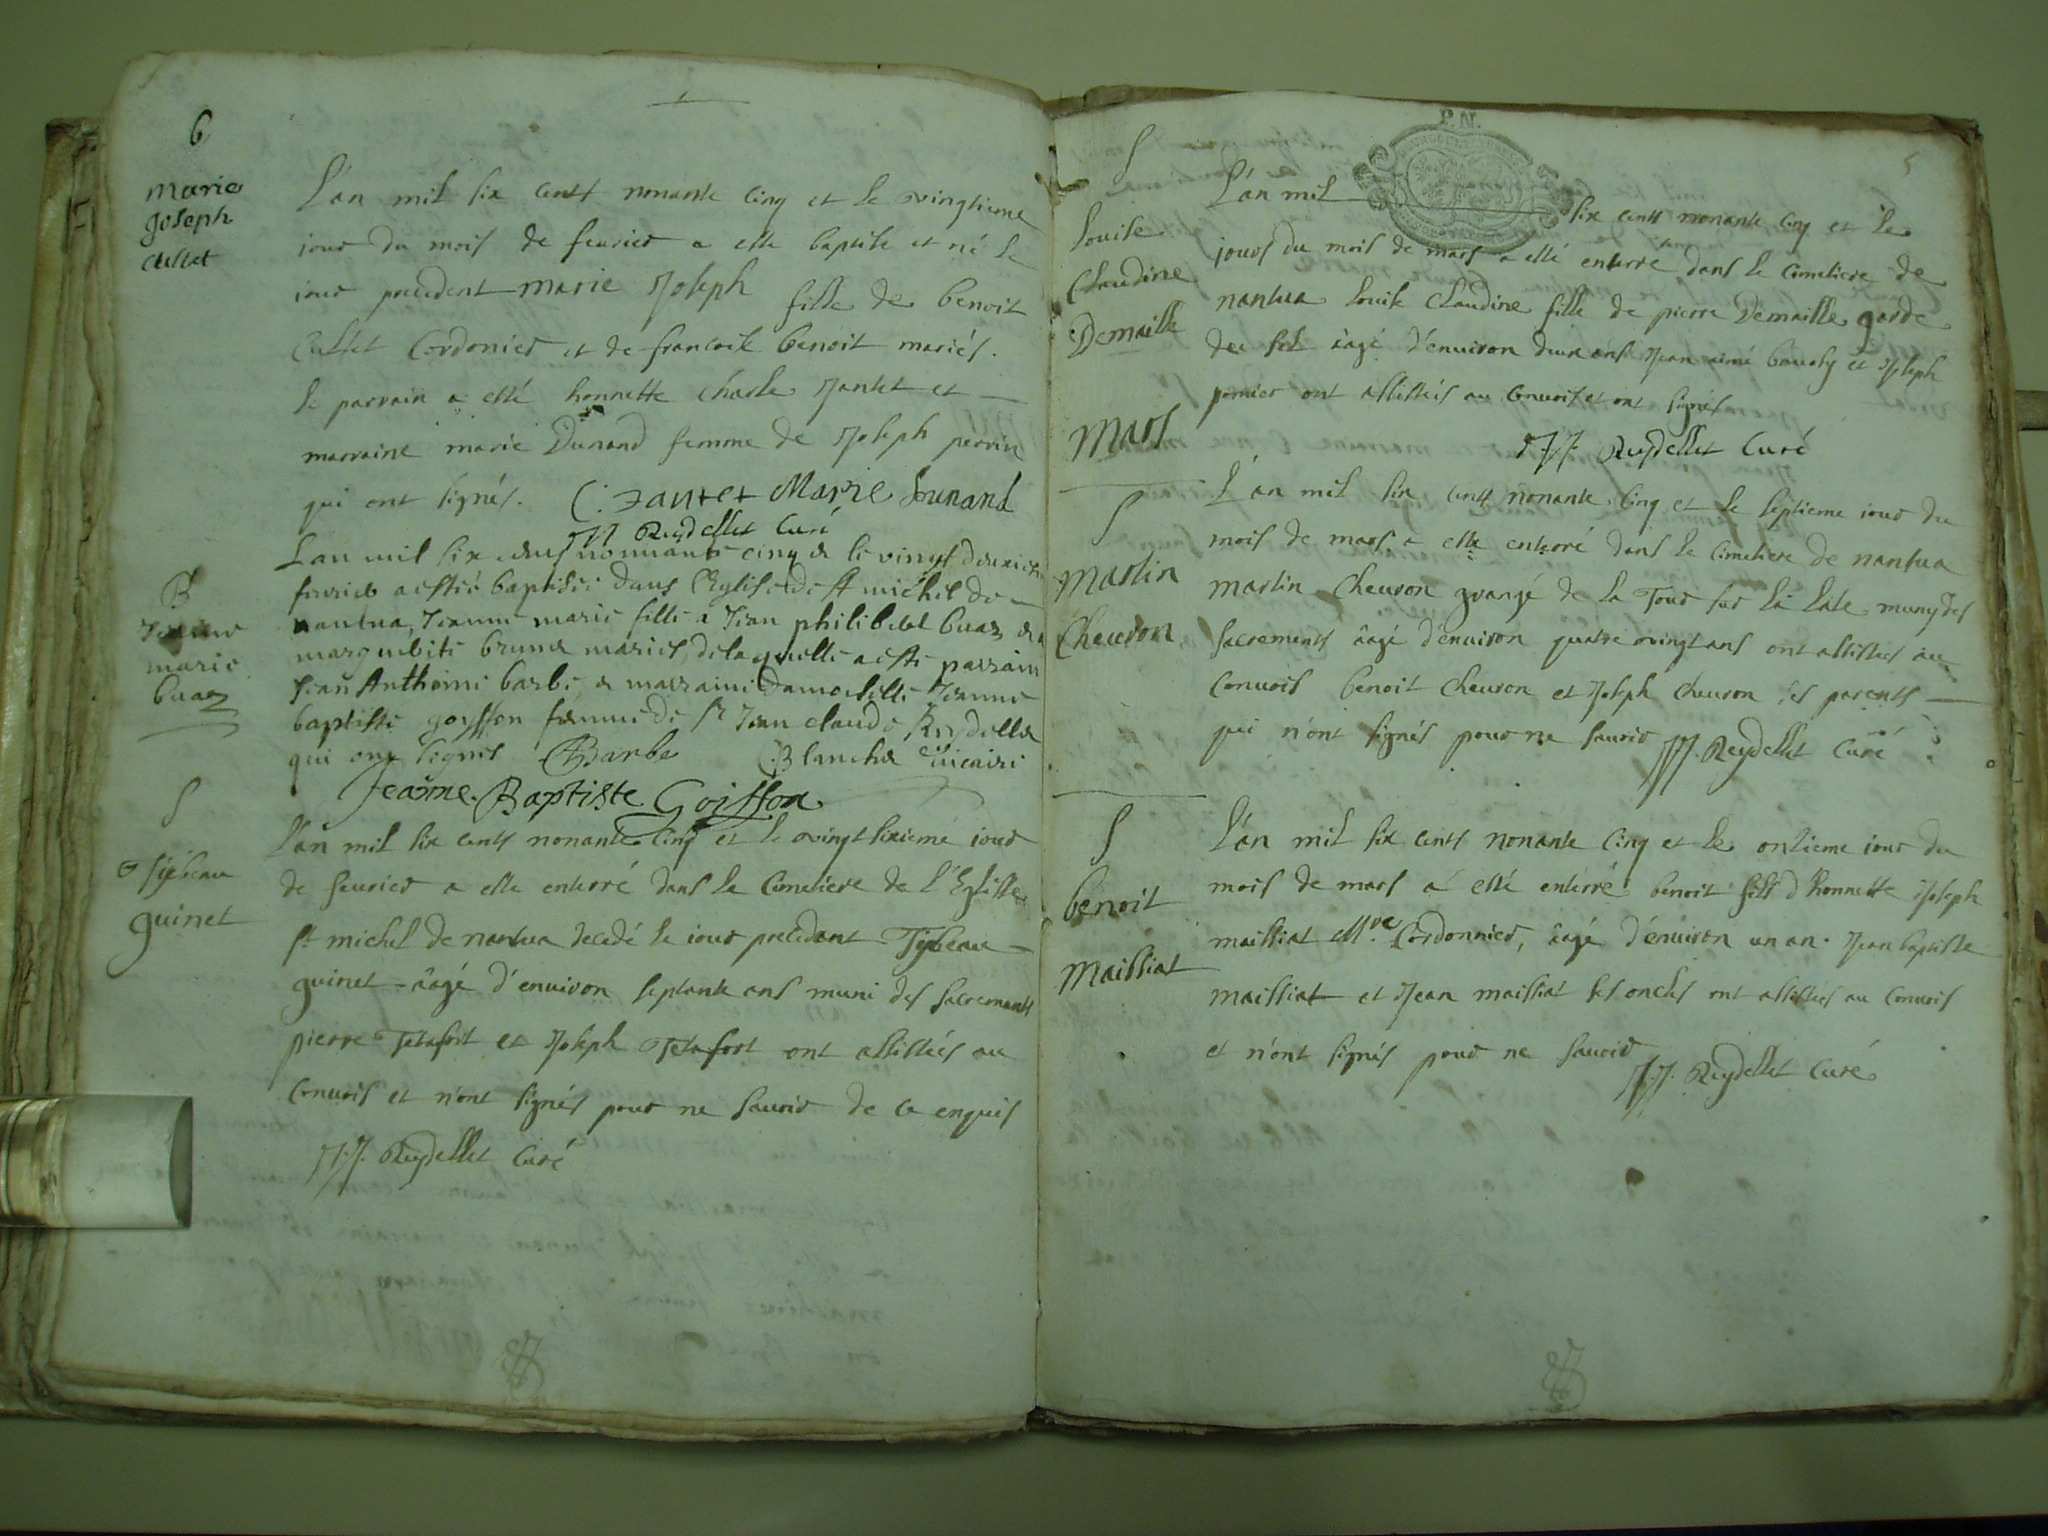 6
marie
Joseph
Cultet
L'an mil six cents nonante cinq et le vingtieme
jour du mois de feurier a esté baptisée et né le
jour precedent marie Joseph fille de benoit
Cultet Cordonier et de francoise benoit mariés.
le parrain a esté honnette Charle Jantet et
marraine marie Dunand femme de Joseph perrin
qui ont signés. C: Jantet Marie Dunand
JJ Reydellet Curé
B
Jeanne
marie
buaz
Lan mil six cens nonnante cinq & le vingt deuxieme
feurier a esté baptisée dans l'Eglise de st michel de
nantua, Jeanne marie fille a Jean philibert buaz &
marguerite brunet mariés, de laquelle a esté parrain
Jean Anthoine barbe, & marraine damoiselle Jeanne
baptiste goyffon femme de sr Jean claude Reydellet
qui ont signés Barbe Blanchet vicaire
Jeanne Baptiste Goiffon
S
Tybeau
guinet
L'an mil six cents nonante cinq et le vingt sixieme jour
de feurier a esté enterré dans le Cimetiere de l'Eglisse
st michel de nantua decedé le jour precedant Tybeau
guinet âagé d'enuiron septante ans muni des sacrements
pierre Tetafort et Joseph Tetafort ont assistés au
Conuois et n'ont signés pour ne sauoir de ce enquis
J.J. Reydellet Curé
P. N.
5
S
Louise
Claudine
Demaille
L'an mil six cents nonante cinq et le
jours du mois de mars a esté enterré dans le Cimetiere de
nantua Louise Claudine fille de pierre Demaille garde
du sel âagé d'enuiron deux ans Jean aimé et Joseph
ont assistés au Conuois et ont signés
J.J. Reydellet Curé
Mars
S
Martin
Cheuron
L'an mil six cents nonante cinq et le septieme jour du
mois de mars a esté enterré dans le Cimetiere de nantua
martin Cheuron grangé de la Tour sur la muny des
sacrements âagé d'enuiron quatre vingt ans ont assistés au
Conuois benoit Cheuron et Joseph cheuron ses parents
qui n'ont signés pour ne sauoir JJ. Reydellet Curé
S
benoit
Maissiat
L'an mil six cents nonante cinq et le onzieme jour du
mois de mars a esté enterré benoit fils d'honnette Joseph
maissiat Mre Cordonnier, âagé d'enuiron un an. Jean baptiste
maissiat et Jean maissiat ses oncles ont assistés au Conuois
et n'ont signés pour ne sauoir
J.J. Reydellet Curé